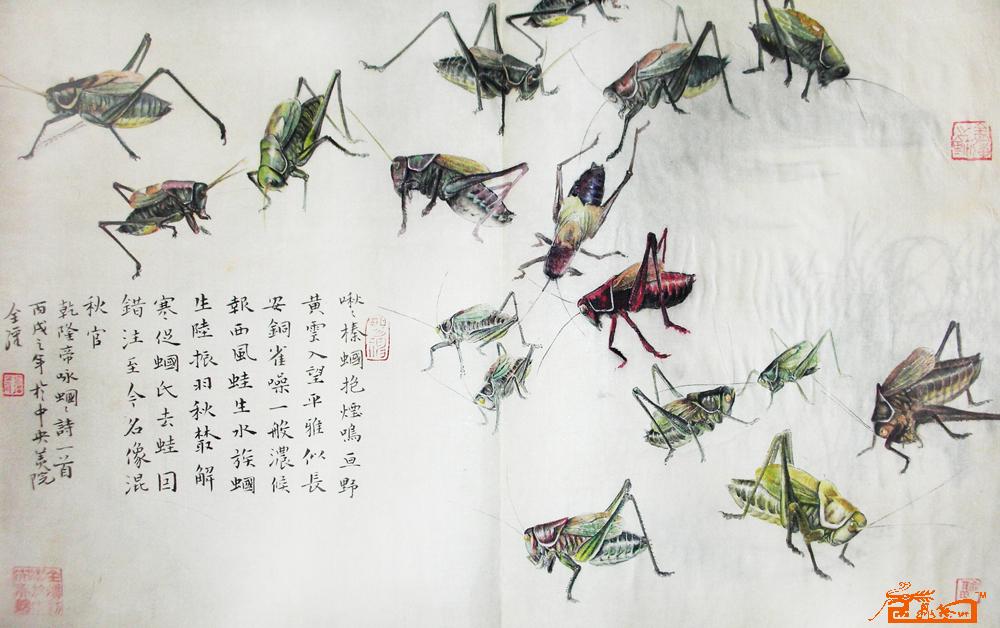 啾々榛蟈抱煙鳴亘野
黃雲入望平雅似長
安銅雀噪一般濃候
報西風蛙生水族蟈
生陸振羽秋叢解
寒促蟈氏去蛙因
錯注至今名像混
秋官
乾隆帝咏蟈々詩一首
丙戌之年於中央美院